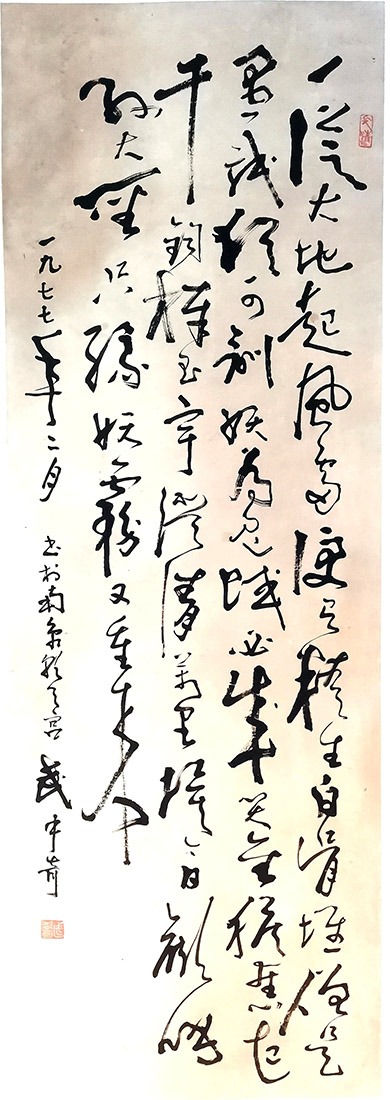 一從大地起風雷便有精生白骨堆僧是
愚氓猶可訓妖为鬼蜮必成災金猴奮起
千鈞棒玉宇澄清萬里埃今日歡呼
孫大聖只緣妖霧又重來
一九七七年十二月 书於南京朝天宫 武中奇